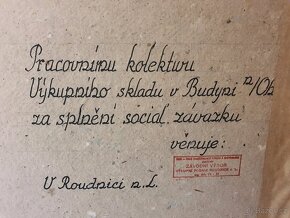 Pracovnímu kolektivu
Výkupního skladu v Budyni n/Oh
za splnění social. závazku
věnuje:
ZÁVODNÍ VÝBOR
V Roudnici n.L.